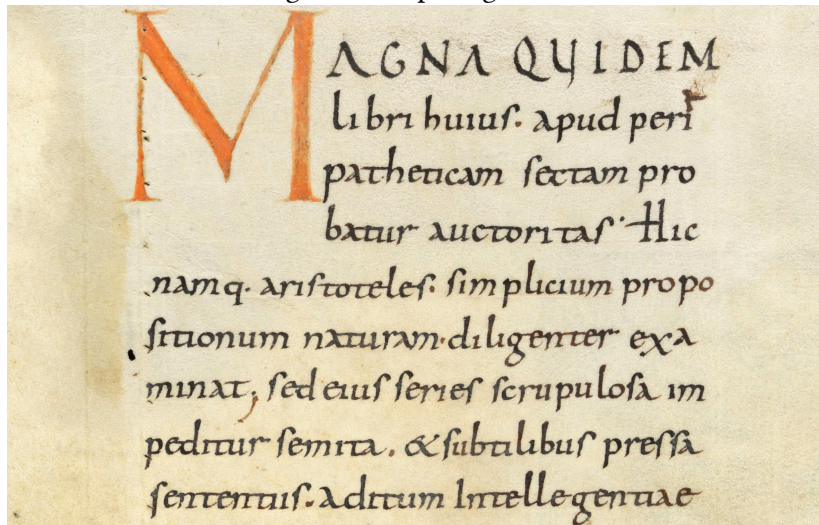 MAGNA QUIDEM
libri huius. apud peri
patheticam sectam pro
batur auctoritas. Hic
namq. aristoteles. simplicium propo
sitionum naturam. diligenter exa
minat; sed eius series scrupulosa im
peditur semita. & subtilibus pressa
sententiis. aditum Intellegentiae